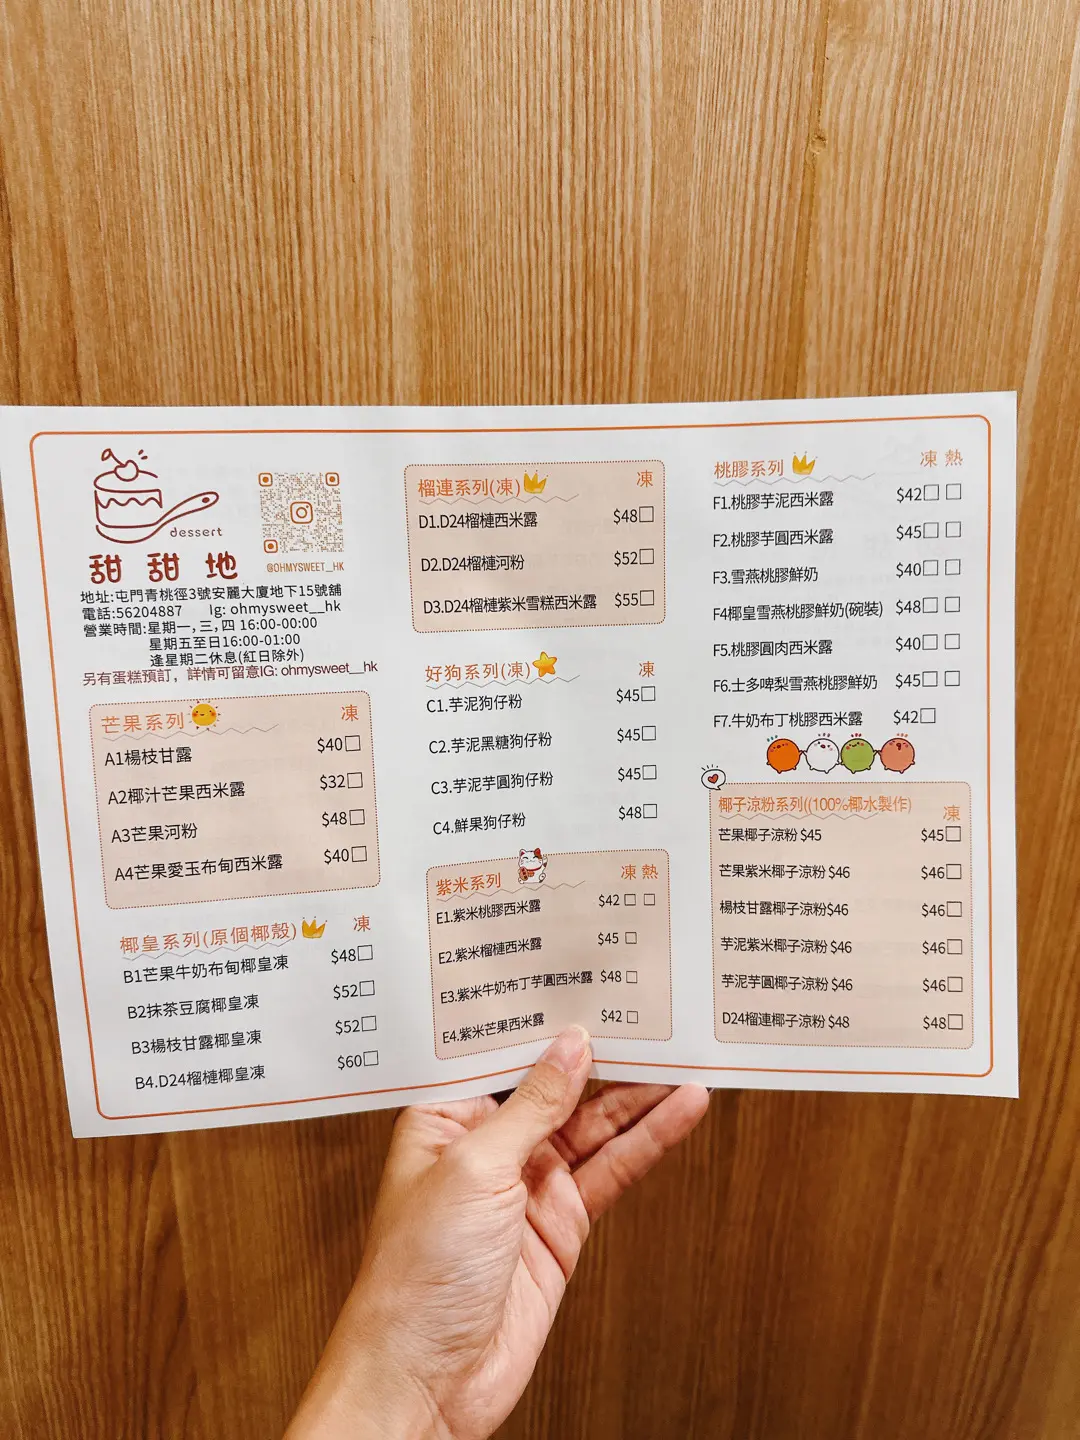 dessert
甜甜地
@OHMYSWEET__HK
地址:屯門青桃徑3號安麗大廈地下15號舖
電話:56204887 Ig: ohmysweet__hk
營業時間:星期一,三,四 16:00-00:00
星期五至日16:00-01:00
逢星期二休息(紅日除外)
另有蛋糕預訂，詳情可留意IG: ohmysweet__hk
芒果系列 凍
A1楊枝甘露 $40
A2椰汁芒果西米露 $32
A3芒果河粉 $48
A4芒果愛玉布甸西米露 $40
椰皇系列(原個椰殼) 凍
B1芒果牛奶布甸椰皇凍 $48
B2抹茶豆腐椰皇凍 $52
B3楊枝甘露椰皇凍 $52
B4.D24榴槤椰皇凍 $60
榴連系列(凍) 凍
D1.D24榴槤西米露 $48
D2.D24榴槤河粉 $52
D3.D24榴槤紫米雪糕西米露 $55
好狗系列(凍) 凍
C1.芋泥狗仔粉 $45
C2.芋泥黑糖狗仔粉 $45
C3.芋泥芋圓狗仔粉 $45
C4.鮮果狗仔粉 $48
紫米系列 凍 熱
E1.紫米桃膠西米露 $42
E2.紫米榴槤西米露 $45
E3.紫米牛奶布丁芋圓西米露 $48
E4.紫米芒果西米露 $42
桃膠系列 凍 熱
F1.桃膠芋泥西米露 $42
F2.桃膠芋圓西米露 $45
F3.雪燕桃膠鮮奶 $40
F4椰皇雪燕桃膠鮮奶(碗裝) $48
F5.桃膠圓肉西米露 $40
F6.士多啤梨雪燕桃膠鮮奶 $45
F7.牛奶布丁桃膠西米露 $42
椰子涼粉系列((100%椰水製作) 凍
芒果椰子涼粉 $45 $45
芒果紫米椰子涼粉 $46 $46
楊枝甘露椰子涼粉$46 $46
芋泥紫米椰子涼粉 $46 $46
芋泥芋圓椰子涼粉 $46 $46
D24榴連椰子涼粉 $48 $48